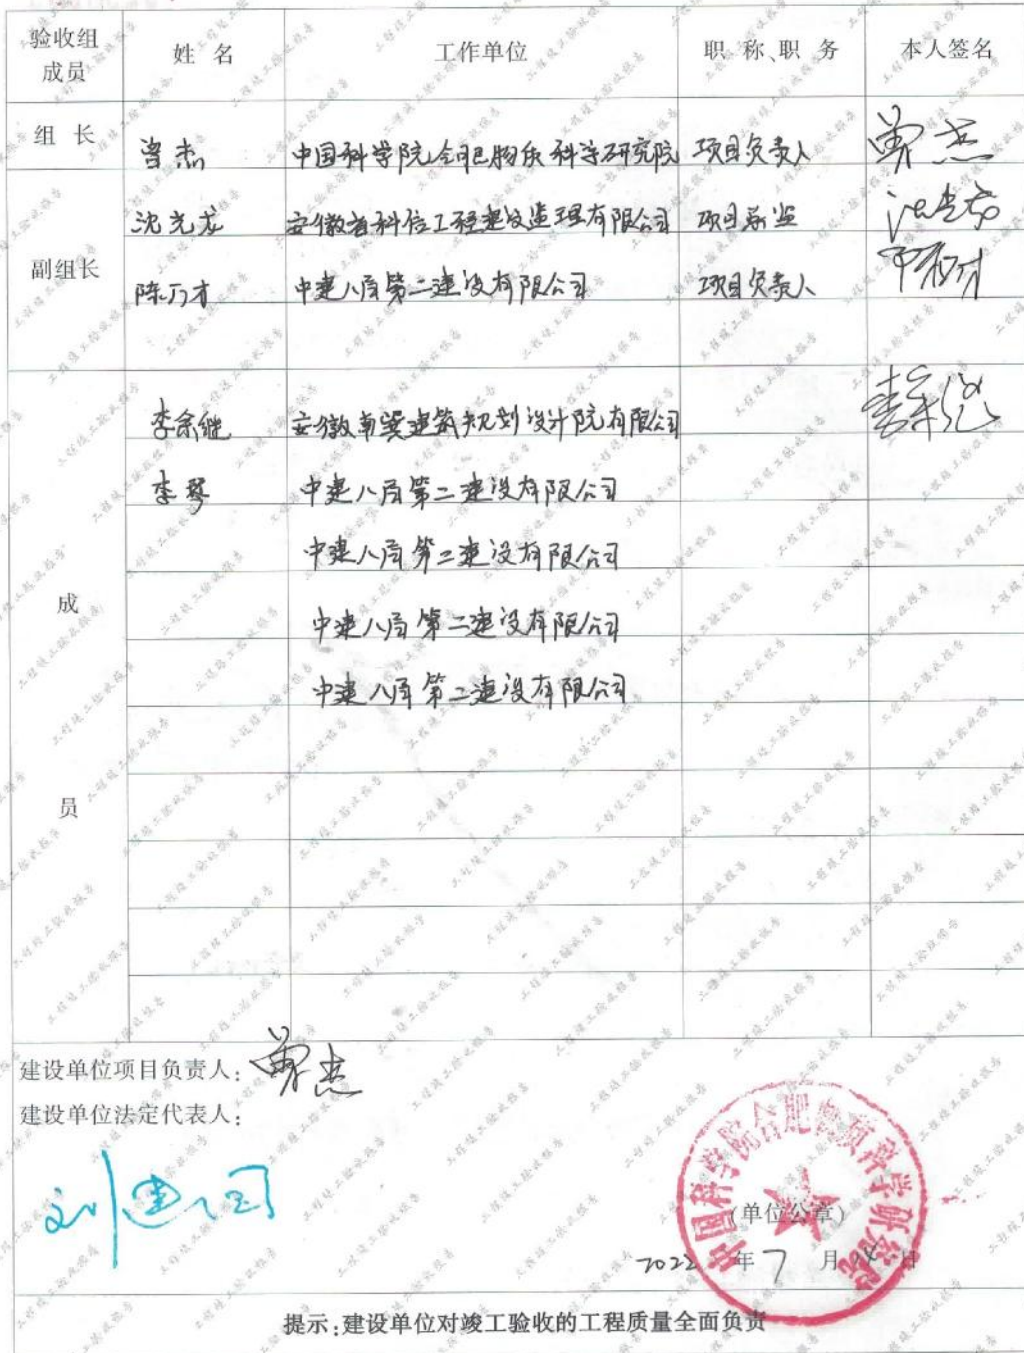 验收组成员 姓 名 工作单位 职 称、职 务 本人签名
组 长 曾杰 中国科学院合肥物质科学研究院 项目负责人 曾杰
沈光龙 安徽省科信工程建设监理有限公司 项目总监
副组长
陈万才 中建八局第二建设有限公司 项目负责人
李余继 安徽南巽建筑规划设计院有限公司 李余继
李琴 中建八局第二建设有限公司
中建八局第二建设有限公司
成
中建八局第二建设有限公司
中建八局第二建设有限公司
员
建设单位项目负责人: 曾杰
建设单位法定代表人:
刘建国
中国科学院合肥物质科学研究院
(单位公章)
2022 年 7 月 日
提示:建设单位对竣工验收的工程质量全面负责
工程竣工验收报告